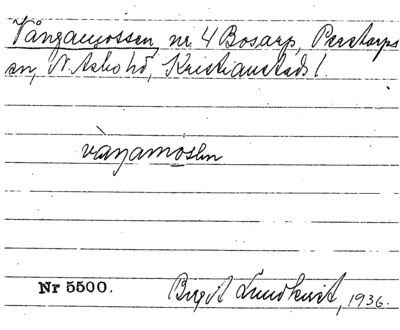 Vångamossen, nr. 4 Bosarp, Perstorps
sn, N. Åsbo hd, Kristianstads l.
Nr 5500.
Birgit Lundkvist, 1936.